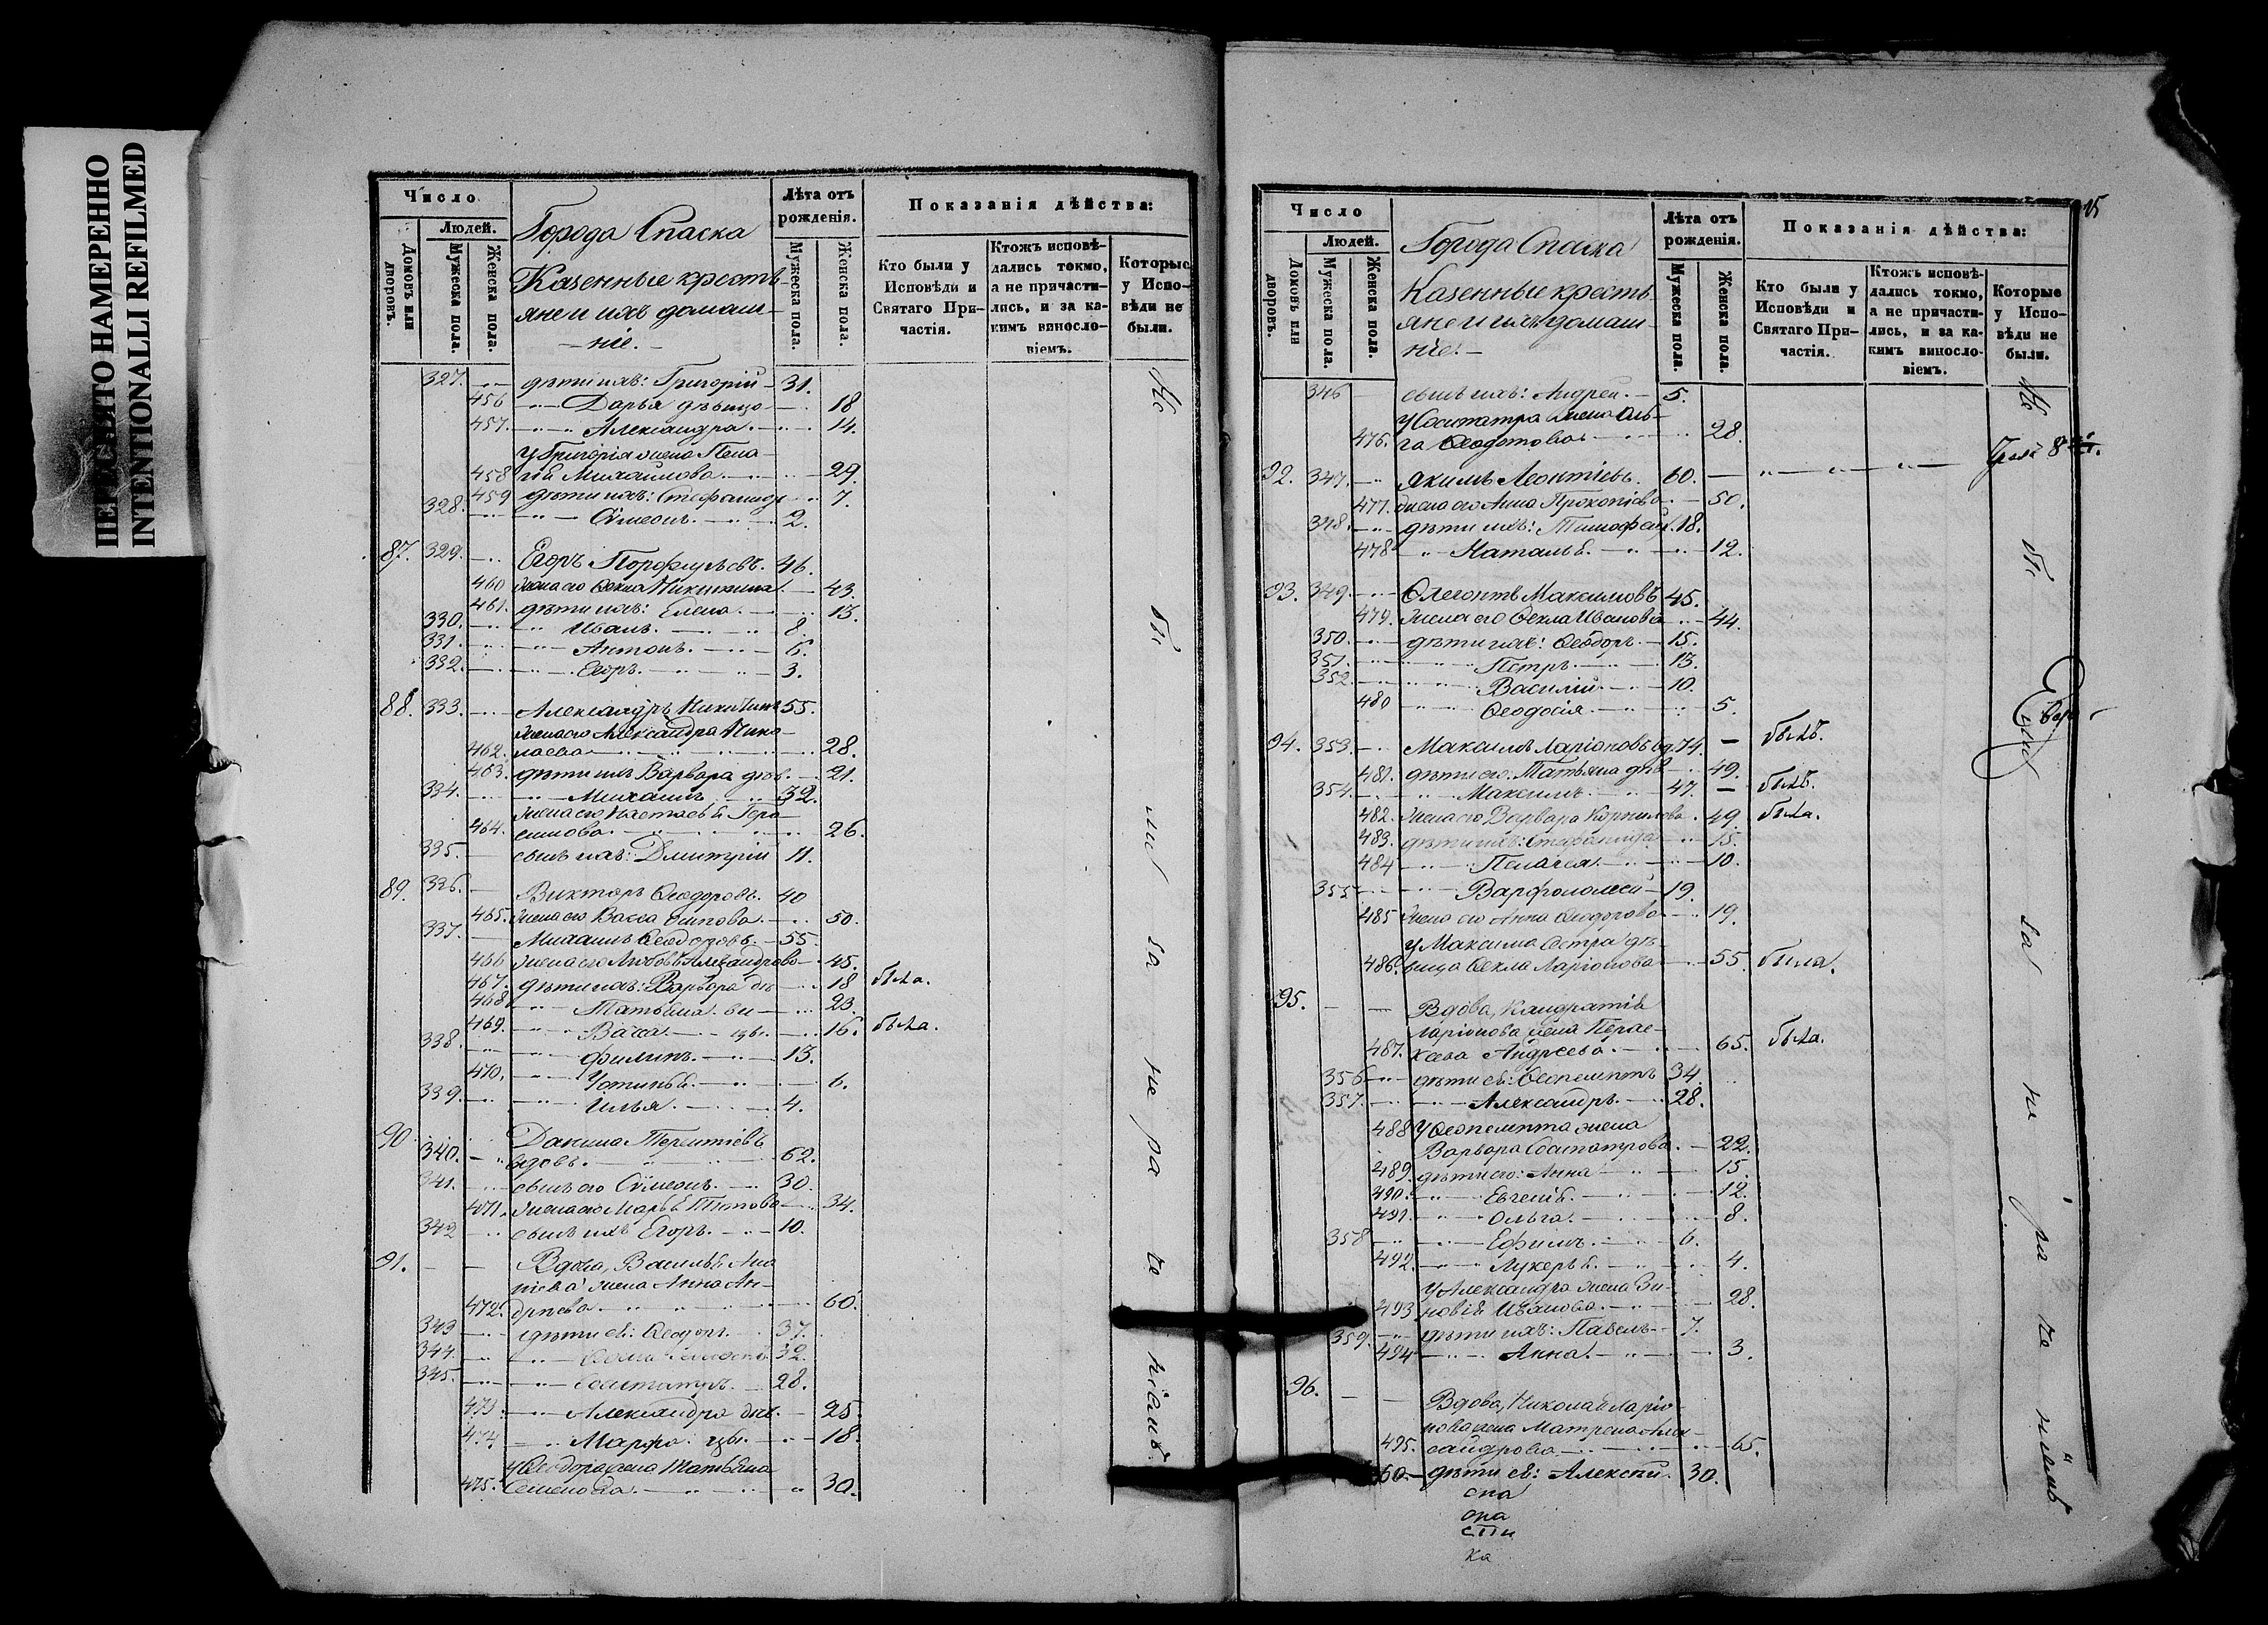 ПЕРЕСНЯТО НАМЕРЕННО
INTENTIONALLI REFILMED
Число
Людей.
Домовъ или дворовъ.
Мужеска пола.
Женска пола.
Города Спаска
Казенные кресть-
яне и ихъ домаш-
ніе.
Лѣта отъ рожденія.
Мужеска пола.
Женска пола.
Показанія дѣйства:
Кто были у Исповѣди и Святаго При-частія.
Ктожъ исповѣ-дались токмо, а не причасти-лись, и за ка-кимъ виносло-віемъ.
Которые у Испо-вѣди не были.
327. дѣти ихъ: Григорій 31.
456 Дарья дѣвица 18
457. Александра 14.
У Григорія жена Пела-
458 гія Михайлова 29.
459 дѣти ихъ: Стефанида 7.
328. Сѵмеонъ 2.
87. 329. Егоръ Порфирьевъ. 46.
460 жена его Фекла Никитина 43.
461. дѣти ихъ: Елена 13.
330. Иванъ. 8.
331. Антонъ. 6.
332. Егоръ. 3.
88. 333. Александръ Никитинъ 55.
жена его Александра Нико-
462. лаева 28.
463. дѣти ихъ Варвара дѣв. 21.
334. Михаилъ 32.
жена его Настасья Гера-
464. симова 26.
335. сынъ ихъ: Дмитрій 11.
89. 336. Викторъ Ѳеодоровъ. 40
465. жена его Васса Осипова. 50.
337. Михаилъ Ѳеодоровъ. 55.
466 жена его Любовь Александрова 45.
467. дѣти ихъ: Варвара дѣ 18 была.
468 Татьяна. ви 23.
469. Васса. цы. 16. была.
338. Филипъ. 13.
470. Устинья. 6.
339. Илья. 4.
90. Данила Терентіевъ
340. вдовъ. 62.
341. сынъ его Сѵмеонъ. 30.
471. жена его Марья Титова 34.
342 сынъ ихъ Егоръ. 10.
91. Вдова, Василья Ана
ньева жена Анна Ан-
472. дреева. 60.
343 дѣти ея: Ѳеодоръ. 37.
344. 32.
345. Сосипатръ. 28.
473. Александра дѣв. 25.
474 Марфа. цы. 18.
У Ѳеодора жена Татьяна
475. Семенова. 30.
Не бы ли за не ра че ніемъ.
15
Число
Людей.
Домовъ или дворовъ.
Мужеска пола.
Женска пола.
Города Спаска
Казенные кресть-
яне и ихъ домаш-
ніе.
Лѣта отъ рожденія.
Мужеска пола.
Женска пола.
Показанія дѣйства:
Кто были у Исповѣди и Святаго При-частія.
Ктожъ исповѣ-дались токмо, а не причасти-лись, и за ка-кимъ виносло-віемъ.
Которые у Испо-вѣди не были.
346 сынъ ихъ: Андрей. 5.
У Сосипатра жена Оль-
476. га Ѳедотова 28.
92. 347. Якимъ Леонтіевъ. 60.
477. жена его Анна Прокопіева 50.
348. дѣти ихъ: Тимофей 18.
478 Наталья. 12.
93. 349. Олегонтъ Максимовъ 45.
479. жена его Ѳекла Иванова 44.
350. дѣти ихъ: Ѳеодоръ. 15.
351. Петръ. 13.
352. Василій. 10.
480 Ѳеодосія. 5.
94. 353. Максимъ Ларіоновъ вд. 74. былъ.
481. дѣти его: Татьяна дѣв 49.
354. Максимъ. 47. былъ.
482. жена его Варвара Корнилова. 49. была.
483. дѣти ихъ: Стефанида 15.
484 Пелагея. 10.
355 Варфоломей 19.
485 жена его Анна Ѳеодорова 19.
У Максима сестра дѣ-
486. вица Ѳекла Ларіонова 55. была.
95. Вдова, Кандратія
Ларіонова жена Парас-
487. кева Андреева. 65. была.
356 дѣти ея: Ѳеопемптъ 34.
357. Александръ. 28.
488 У Ѳеопемпта жена
Варвара Сосипатрова. 22.
489. дѣти его: Анна 15.
490. Евгенія. 12.
491. Ольга. 8.
358 Ефимъ. 6.
492. Лукерья. 4.
У Александра жена Зи-
493 новія Иванова. 28.
359. дѣти ихъ: Павелъ 7.
494 Анна. 3.
96. Вдова, Николая Ларіо-
нова жена Матрена Алек-
495. сандрова 65.
60. дѣти ея: Алексѣй. 30.
Не бы ли за не ра че ніемъ
спа
ка